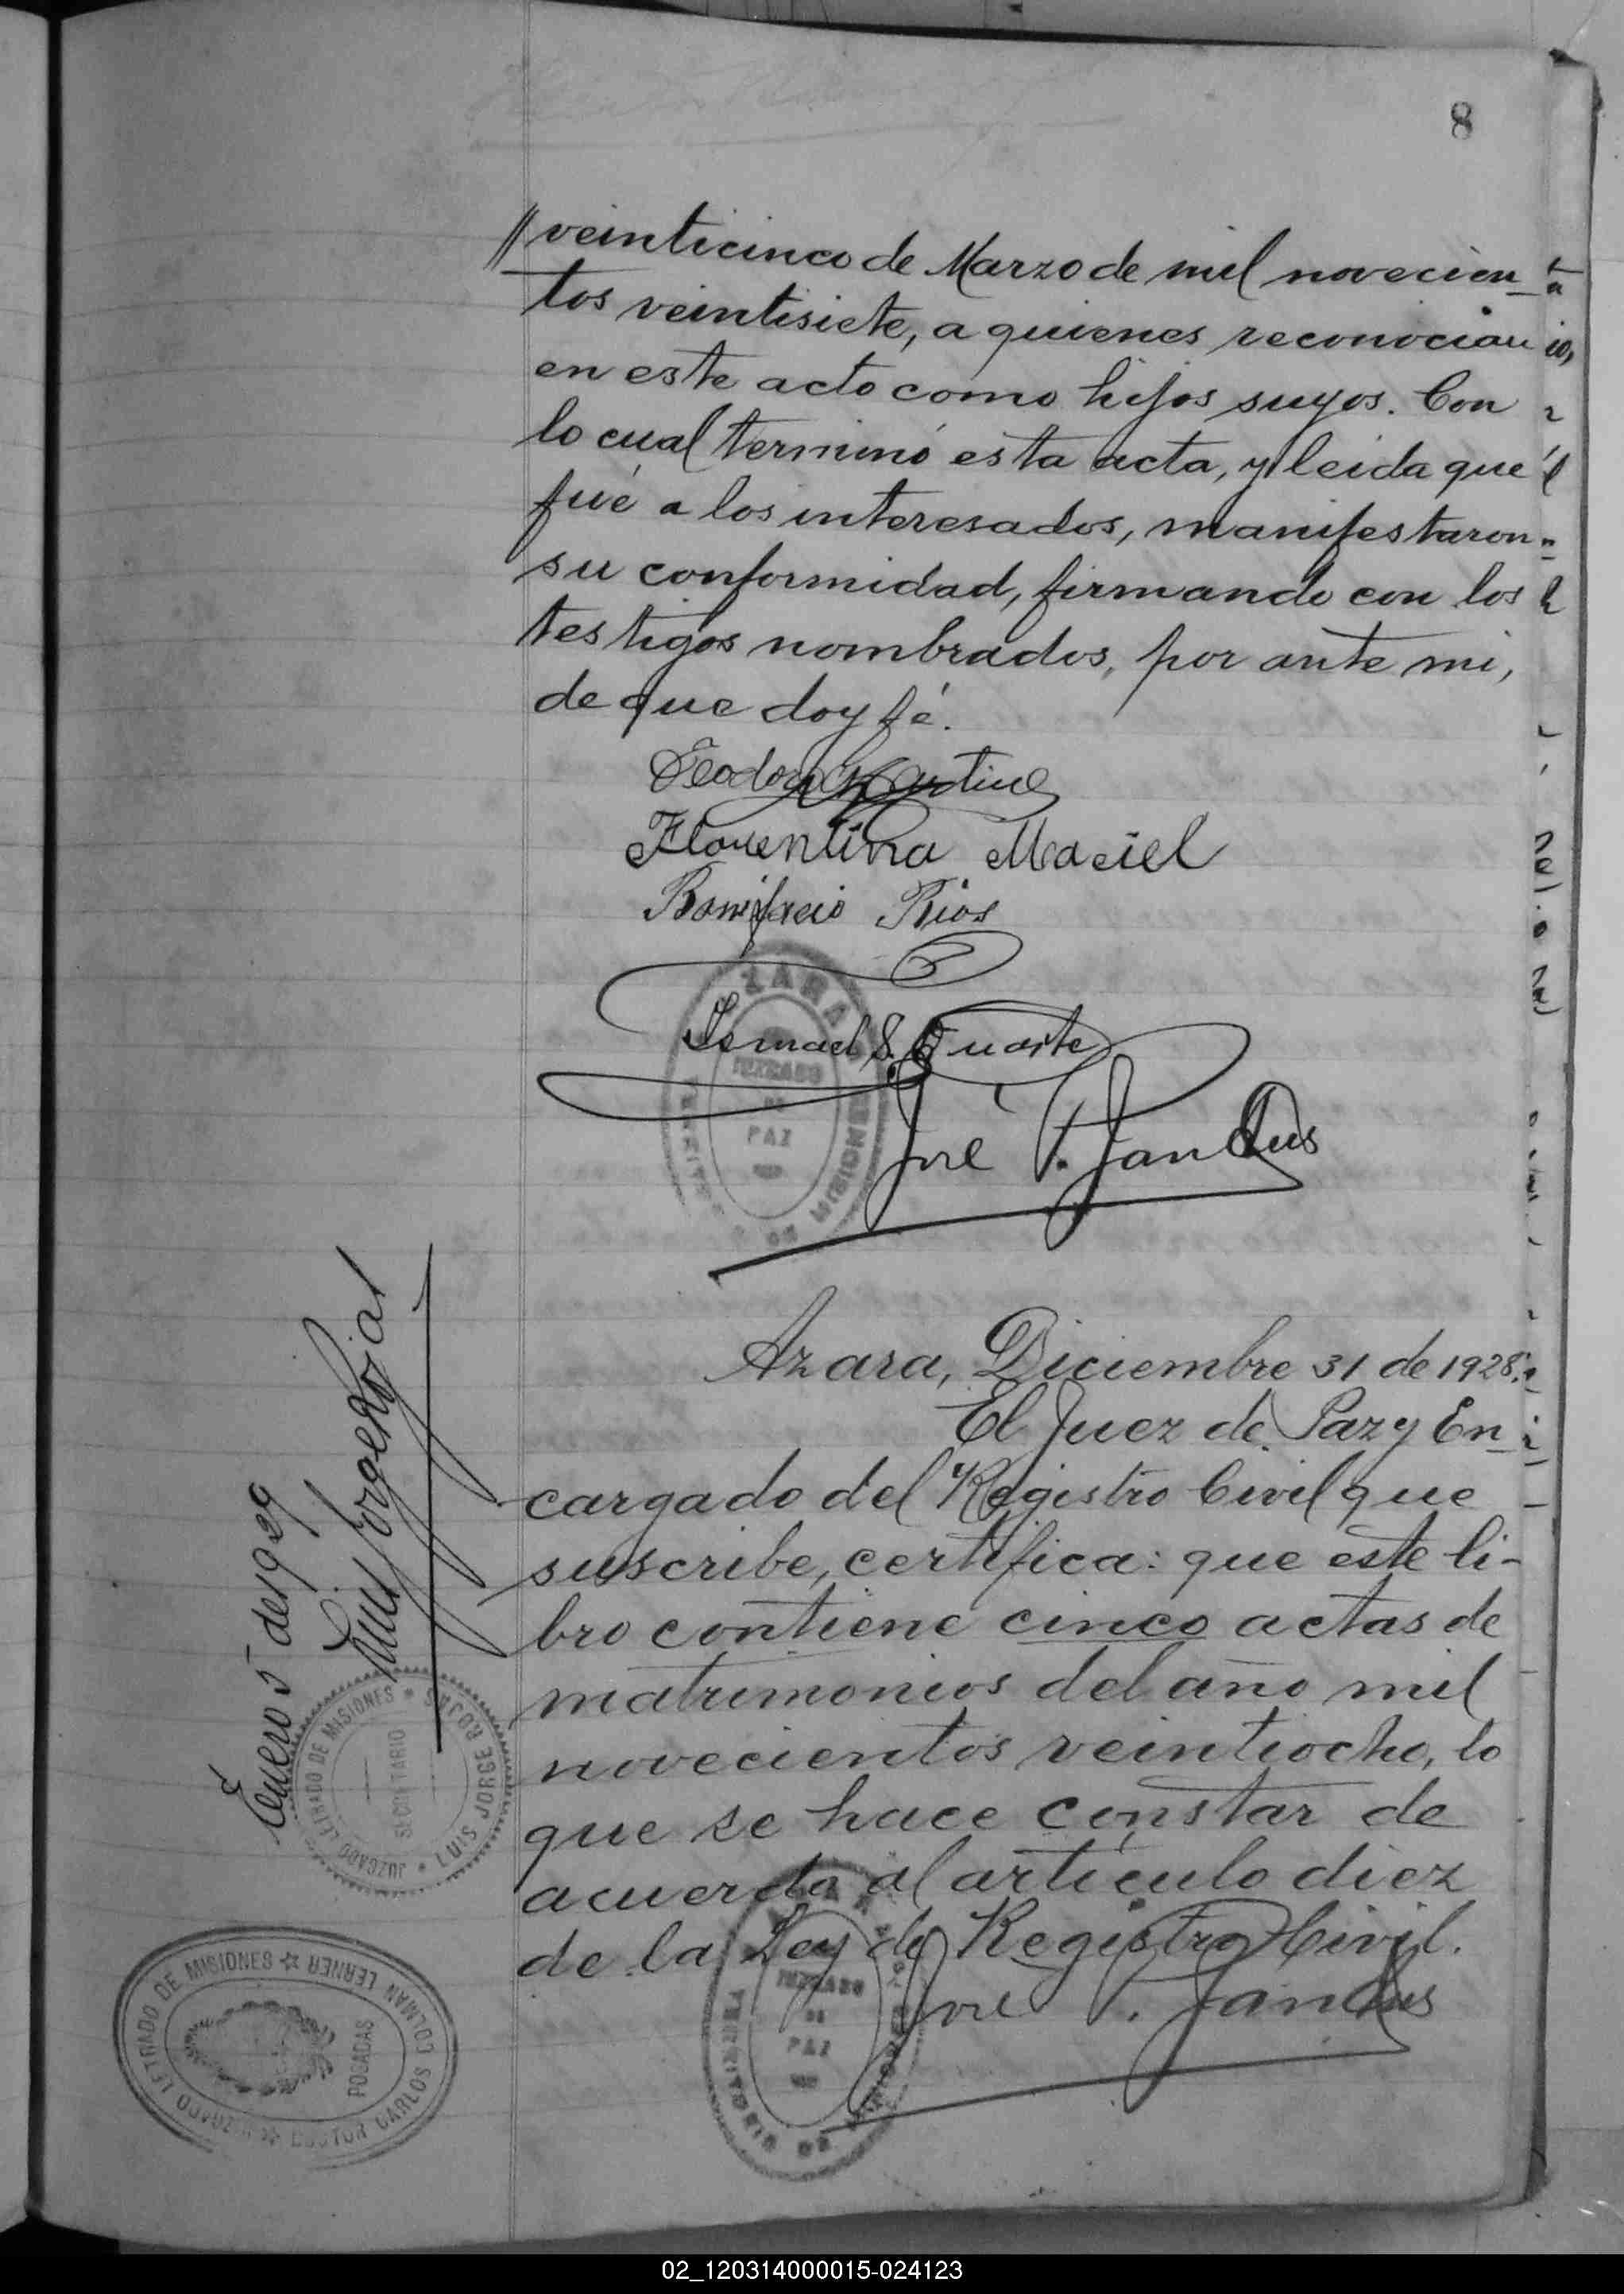 8
// veinticinco de Marzo de mil novecien_
tos veintisiete, a quienes reconocian
en este acto como hijos suyos. Con
lo cual terminó esta acta, y leida que
fué a los interesados, manifestaron
su conformidad, firmando con los
testigos nombrados, por ante mi,
de que doy fé.
Florentina Maciel
Bonifacio Rios
AZARA
Ismael S. Duarte
JUZGADO
DE
PAZ
José
Azara, Diciembre 31 de 1928.
El Juez de Paz y En_
cargado del Registro Civil que
suscribe, certifica: que este li-
bro contiene cinco actas de
matrimonios del año mil
novecientos veintiocho, lo
que se hace constar de
acuerdo al artículo diez
de la Ley de Registro Civil.
José
JUZGADO
DE
PAZ
Enero 5 de 1929
Luis Jorge Rojas
JUZGADO LETRADO DE MISIONES * LUIS JORGE ROJAS *
SECRETARIO
JUZGADO LETRADO DE MISIONES ☆ DOCTOR CARLOS COLMAN LERNER ☆
POSADAS
02_120314000015-024123